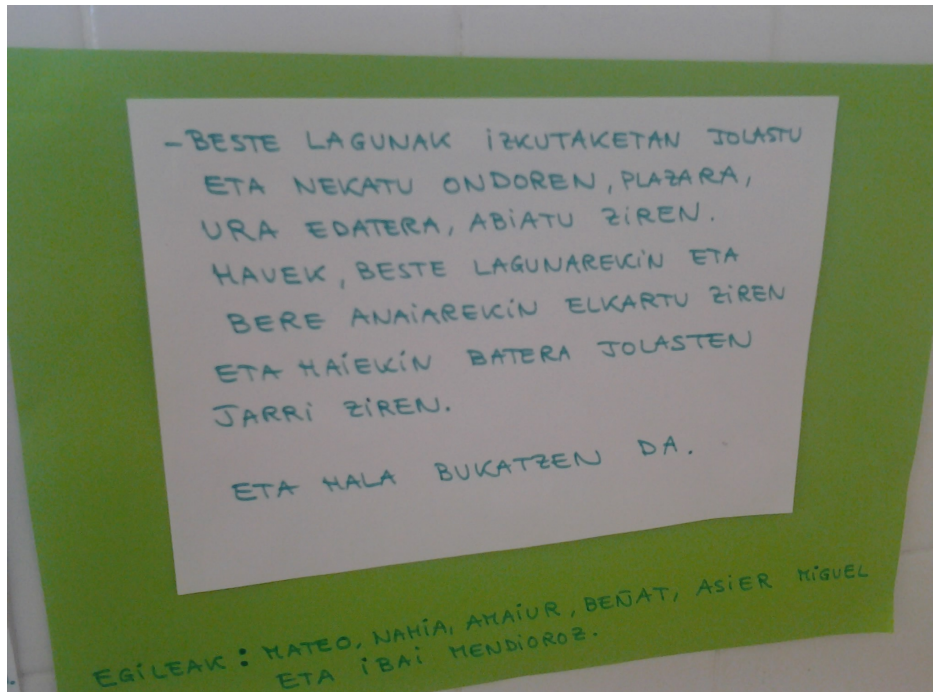 - BESTE LAGUNAK IZKUTAKETAN JOLASTU
ETA NEKATU ONDOREN, PLAZARA,
URA EDATERA, ABIATU ZIREN.
HAUEK, BESTE LAGUNAREKIN ETA
BERE ANAIAREKIN ELKARTU ZIREN
ETA HAIEKIN BATERA JOLASTEN
JARRI ZIREN.
ETA HALA BUKATZEN DA.
EGILEAK: MATEO, NAHIA, AMAIUR, BEÑAT, ASIER MIGUEL
ETA IBAI MENDIOROZ.